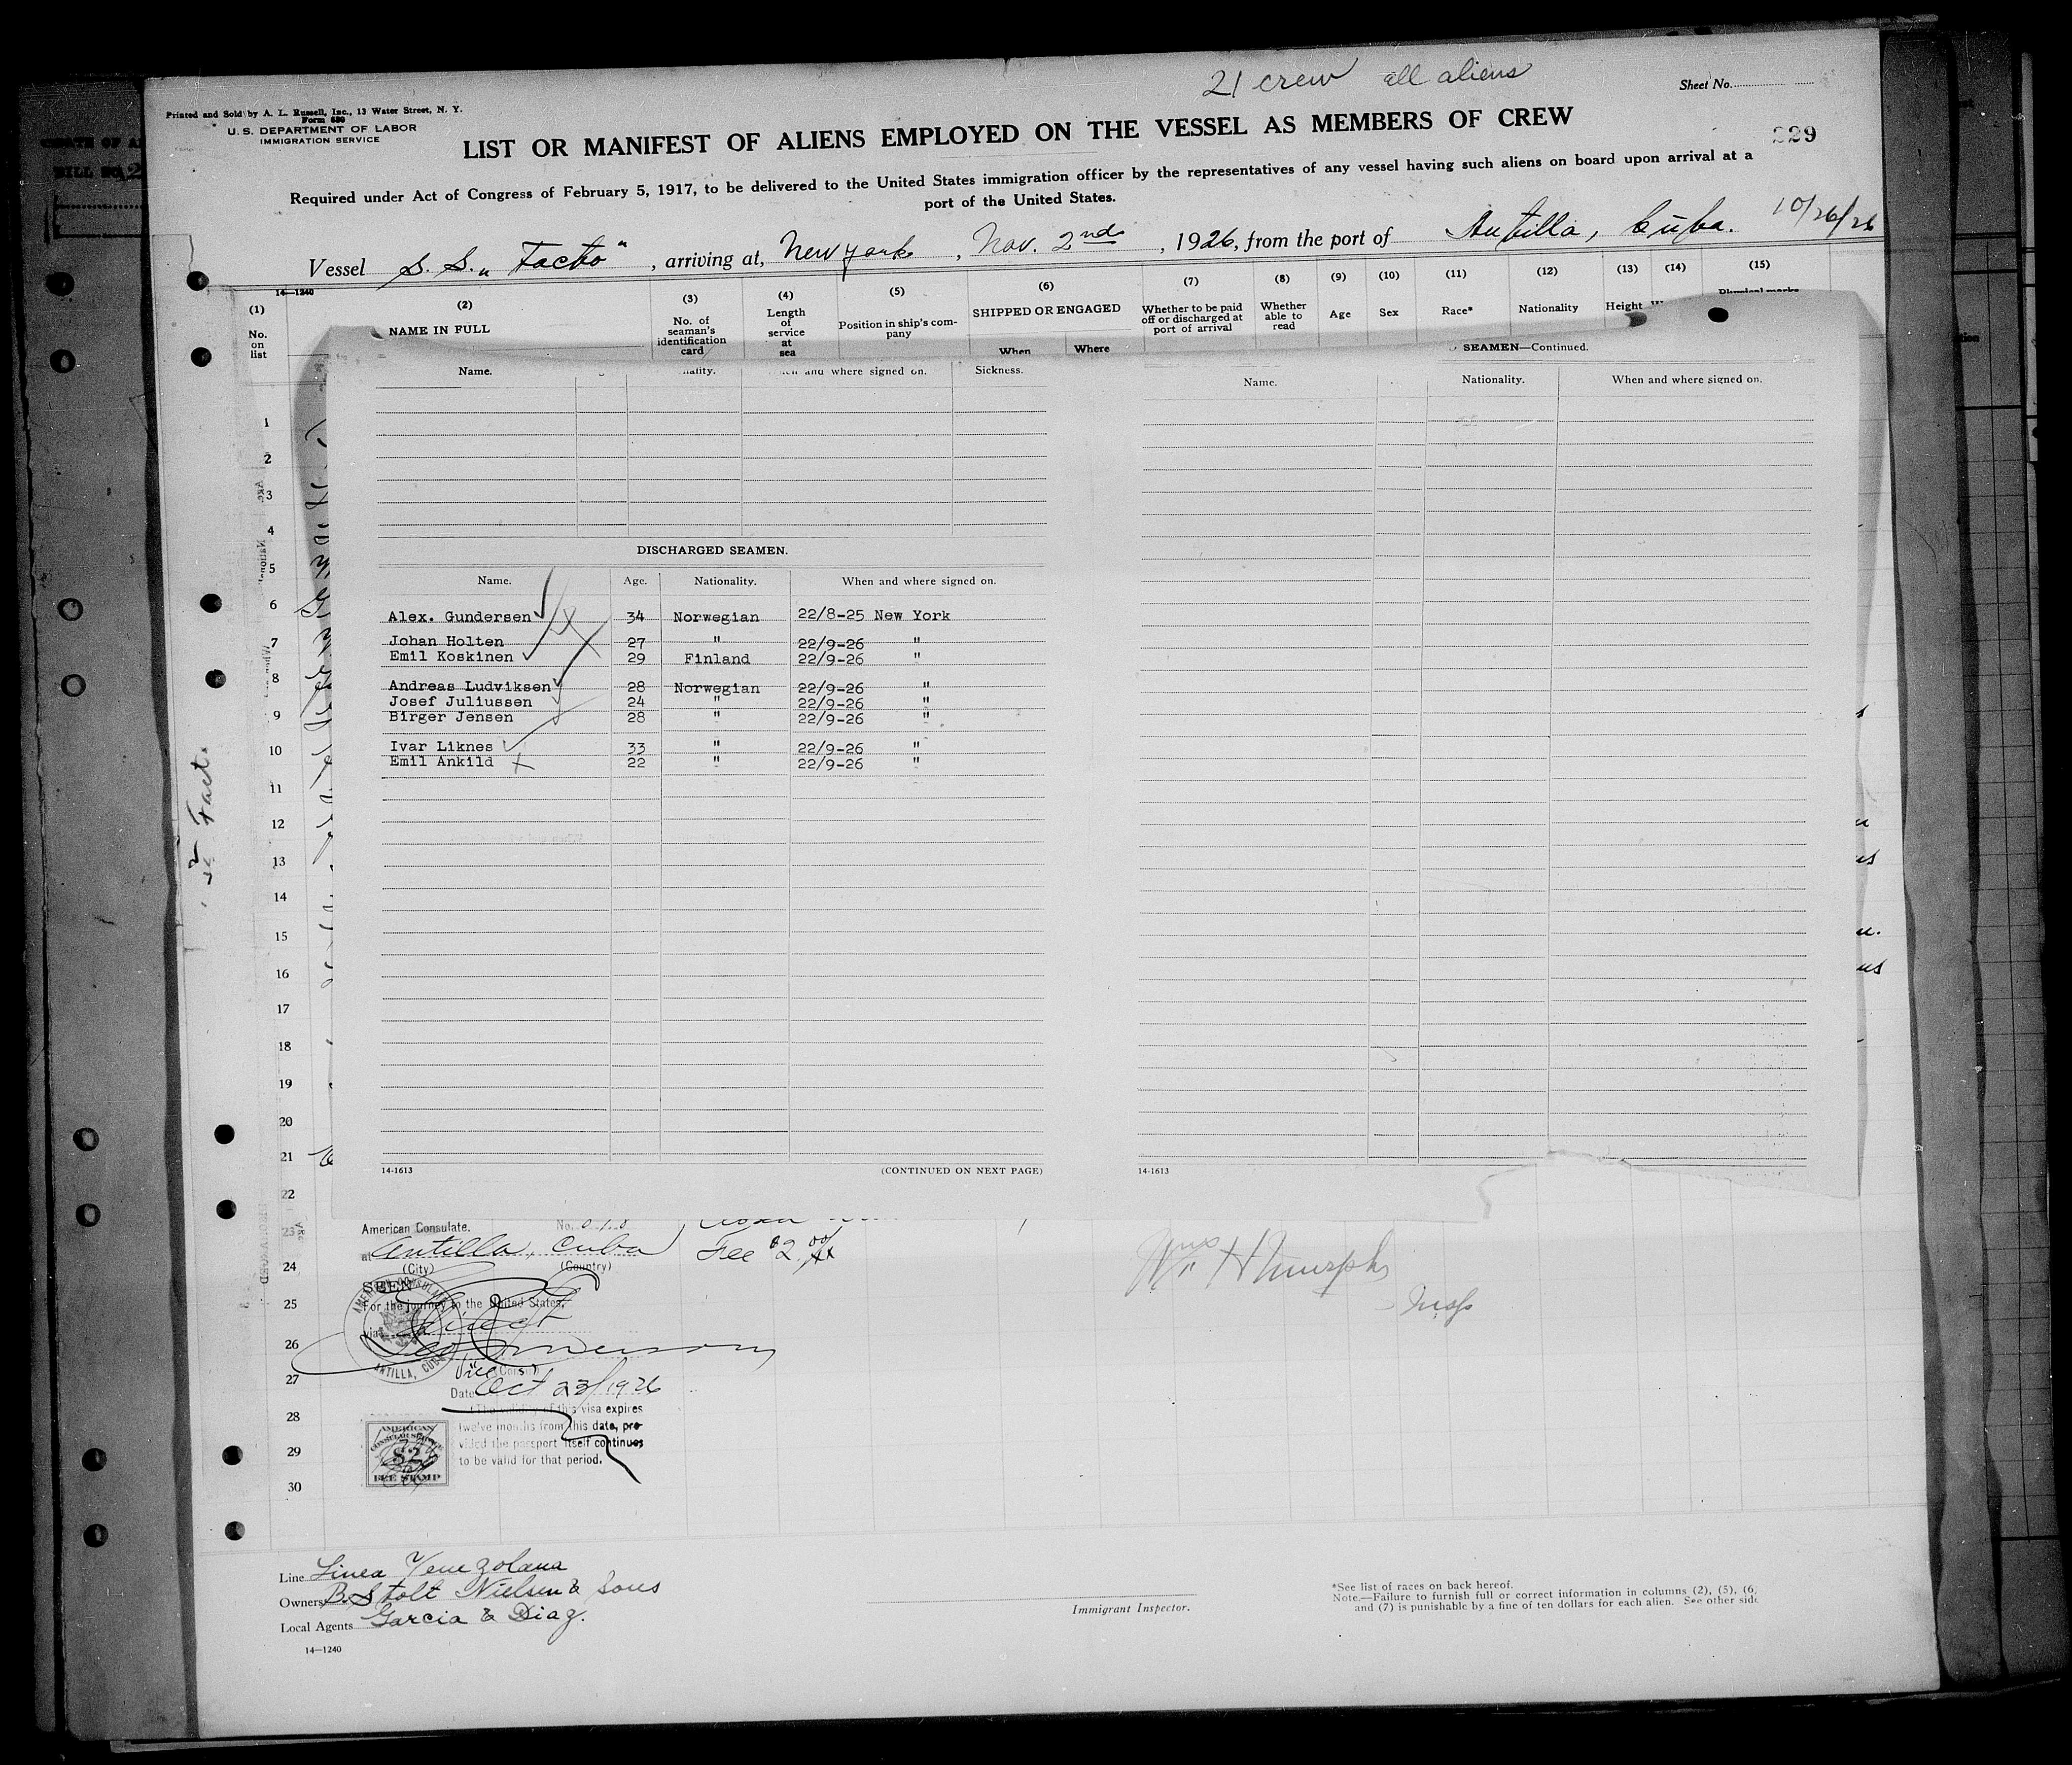 21 crew all aliens
Sheet No.
Printed and Sold by A. L. Russell, Inc., 13 Water Street, N. Y.
Form 680
U. S. DEPARTMENT OF LABOR
IMMIGRATION SERVICE
LIST OR MANIFEST OF ALIENS EMPLOYED ON THE VESSEL AS MEMBERS OF CREW
229
Required under Act of Congress of February 5, 1917, to be delivered to the United States immigration officer by the representatives of any vessel having such aliens on board upon arrival at a
port of the United States.
10/26/26
Vessel S. S. "Facto", arriving at, New York, Nov. 2nd, 1926, from the port of Antilla, Cuba.
14—1240
(1) (2) (3) (4) (5) (6) (7) (8) (9) (10) (11) (12) (13) (14) (15)
No. on list
NAME IN FULL
No. of seaman's identification card
Length of service at sea
Position in ship's company
SHIPPED OR ENGAGED
When Where
Whether to be paid off or discharged at port of arrival
Whether able to read
Age
Sex
Race*
Nationality
Height
Physical marks
SEAMEN—Continued.
Name. and where signed on. Sickness.
Name. Nationality. When and where signed on.
DISCHARGED SEAMEN.
Name. Age. Nationality. When and where signed on.
Alex. Gundersen 34 Norwegian 22/8-25 New York
Johan Holten 27 " 22/9-26 "
Emil Koskinen 29 Finland 22/9-26 "
Andreas Ludviksen 28 Norwegian 22/9-26 "
Josef Juliussen 24 " 22/9-26 "
Birger Jensen 28 " 22/9-26 "
Ivar Liknes 33 " 22/9-26 "
Emil Ankild 22 " 22/9-26 "
14-1613
(CONTINUED ON NEXT PAGE)
14-1613
1
2
3
4
5
6
7
8
9
10
11
12
13
14
15
16
17
18
19
20
21
22
23
24
25
26
27
28
29
30
American Consulate. No.
at Antilla, Cuba Fee $2.00
(City) (Country)
SEEN
For the journey to the United States,
via Direct
Vice (Consul)
Date Oct 23/1926
(The validity of this visa expires
twelve months from this date, pro-
vided the passport itself continues
to be valid for that period.
AMERICAN
CONSULAR SERVICE
$2
FEE STAMP
ANTILLA, CUBA
Wm H Murphy
Insp
Line Linea Venezolana
Owners B. Stolt Nielsen & Sons
Local Agents Garcia & Diaz.
14—1240
Immigrant Inspector.
*See list of races on back hereof.
Note.—Failure to furnish full or correct information in columns (2), (5), (6)
and (7) is punishable by a fine of ten dollars for each alien. See other side